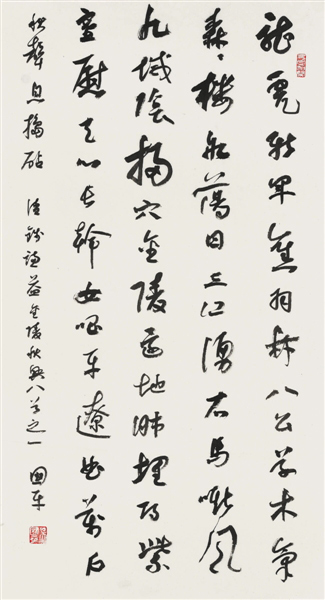 龍虎新軍舊羽林八公草木氣
森々樓船蕩日三江湧石馬嘶風
九域陰掃穴金陵還地肺埋胡紫
塞慰天心長幹女唱平遼曲萬戶
秋聲息搗砧 清錢謙益金陵秋興八首之一